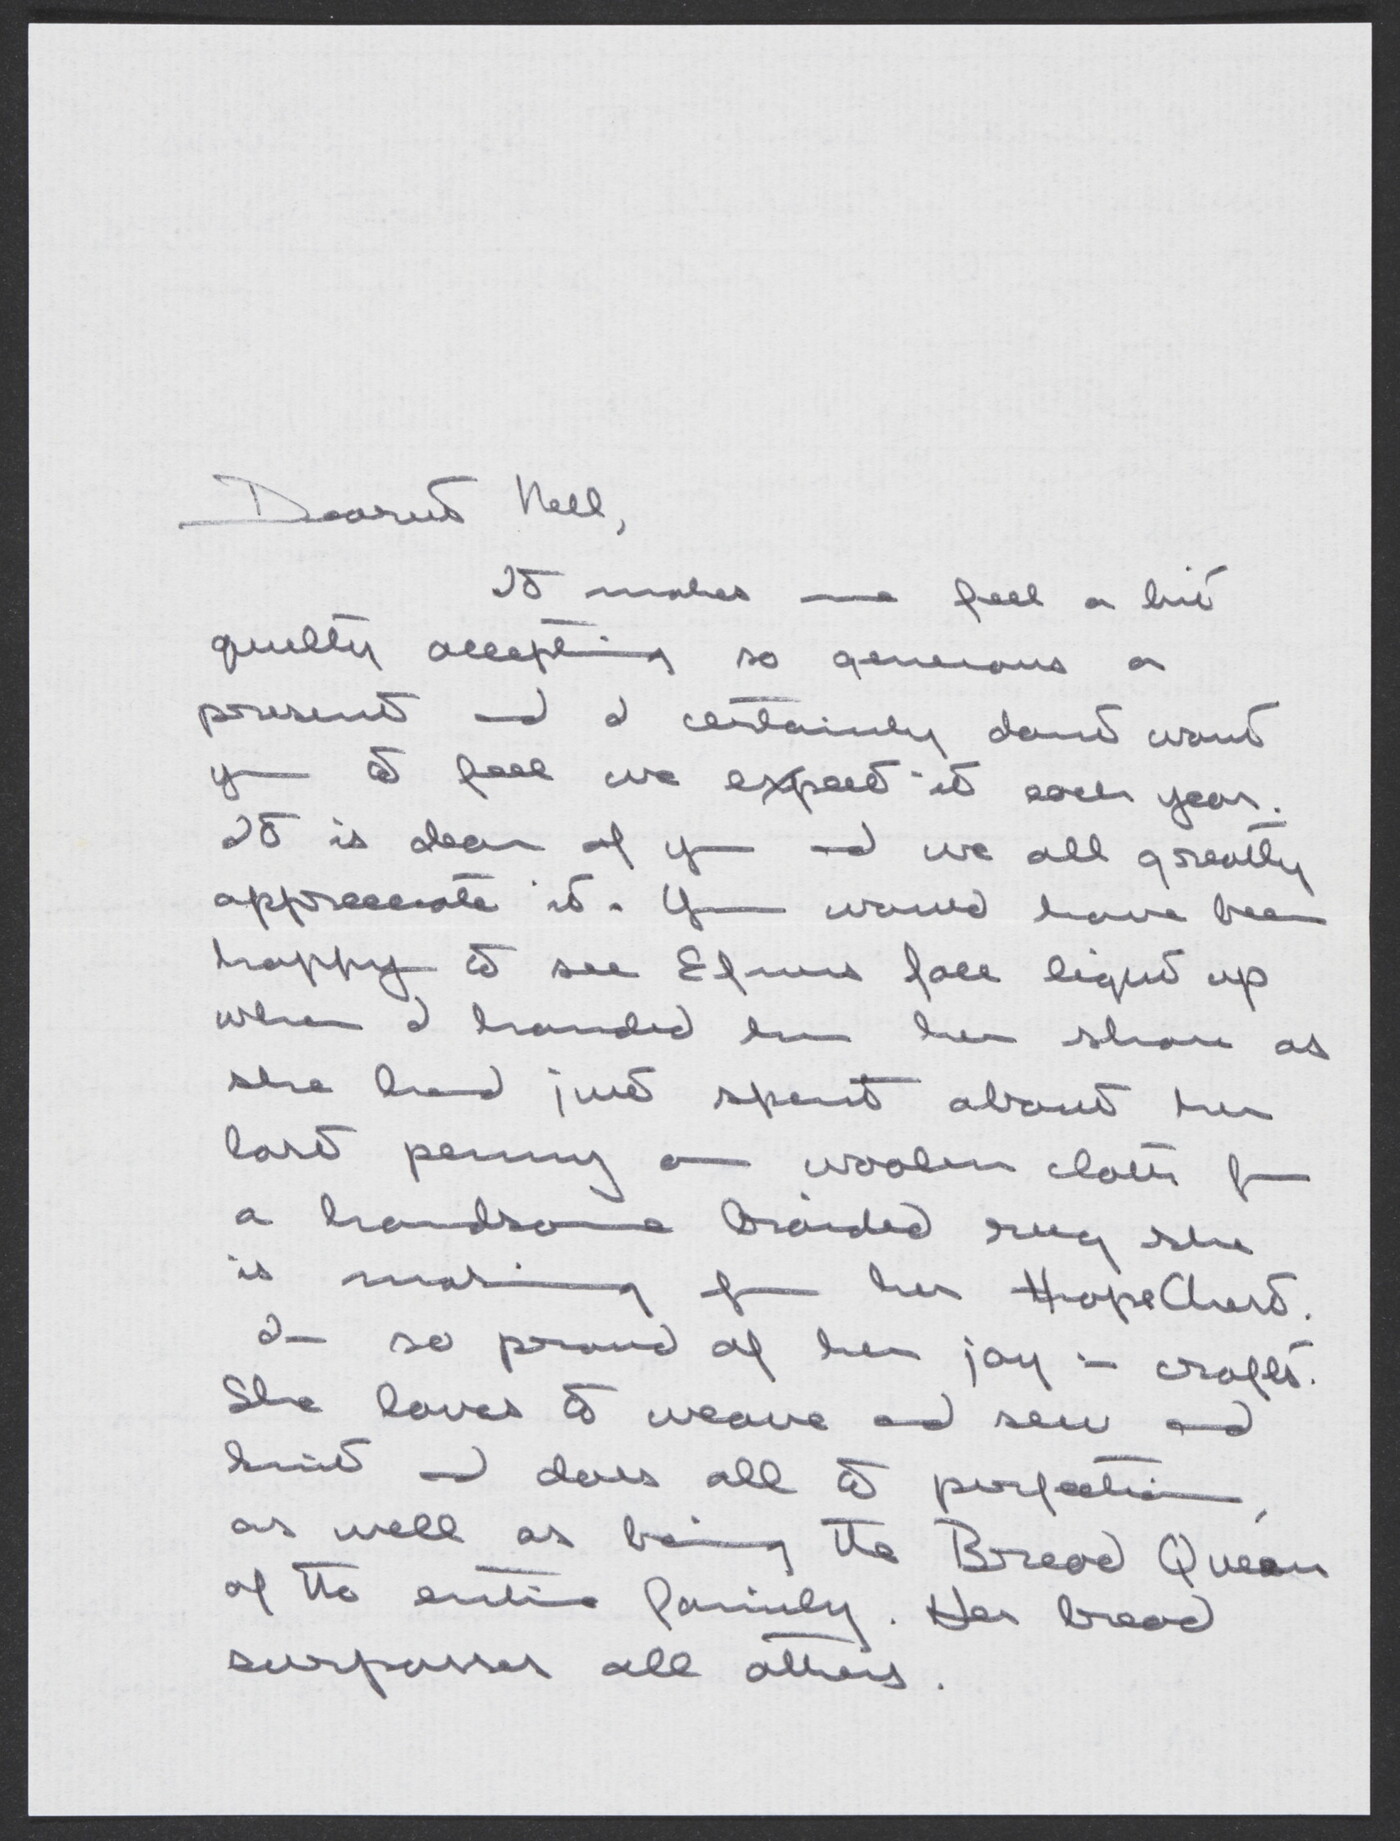 Dearest Nell,
It makes me feel a bit
guilty accepting so generous a
present and I certainly dont want
you to feel we expect it each year.
It is dear of you and we all greatly
appreciate it. You would have been
happy to see Efners face light up
when I handed her her share as
she had just spent about her
last penny on woolen cloth for
a handsome braided rug she
is making for her Hope Chest.
Im so proud of her joy in crafts.
She loves to weave and sew and
knit and does all to perfection,
as well as being the Bread Queen
of the entire family. Her bread
surpasses all others.